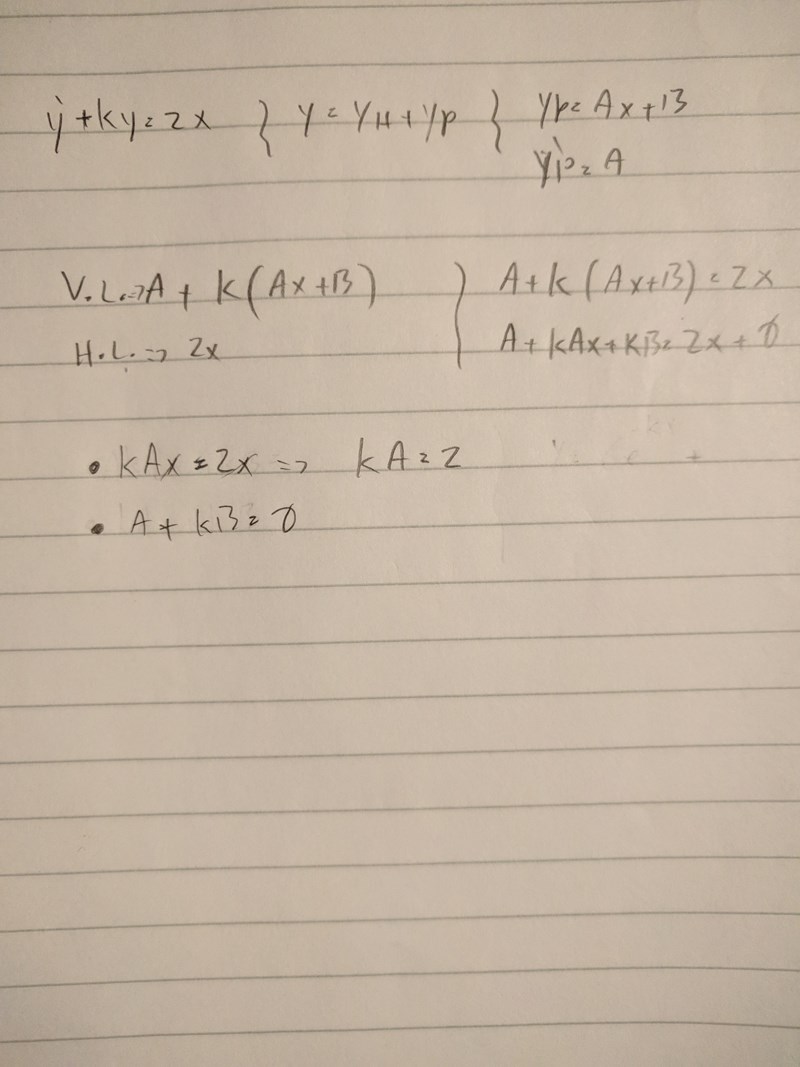 y' + ky = 2x } y = yH + yp } yp = Ax + B
yp' = A
V.L. => A + k(Ax + B) ) A + k(Ax + B) = 2x
H.L. => 2x A + kAx + kB = 2x + 0
• kAx = 2x => kA = 2
• A + kB = 0